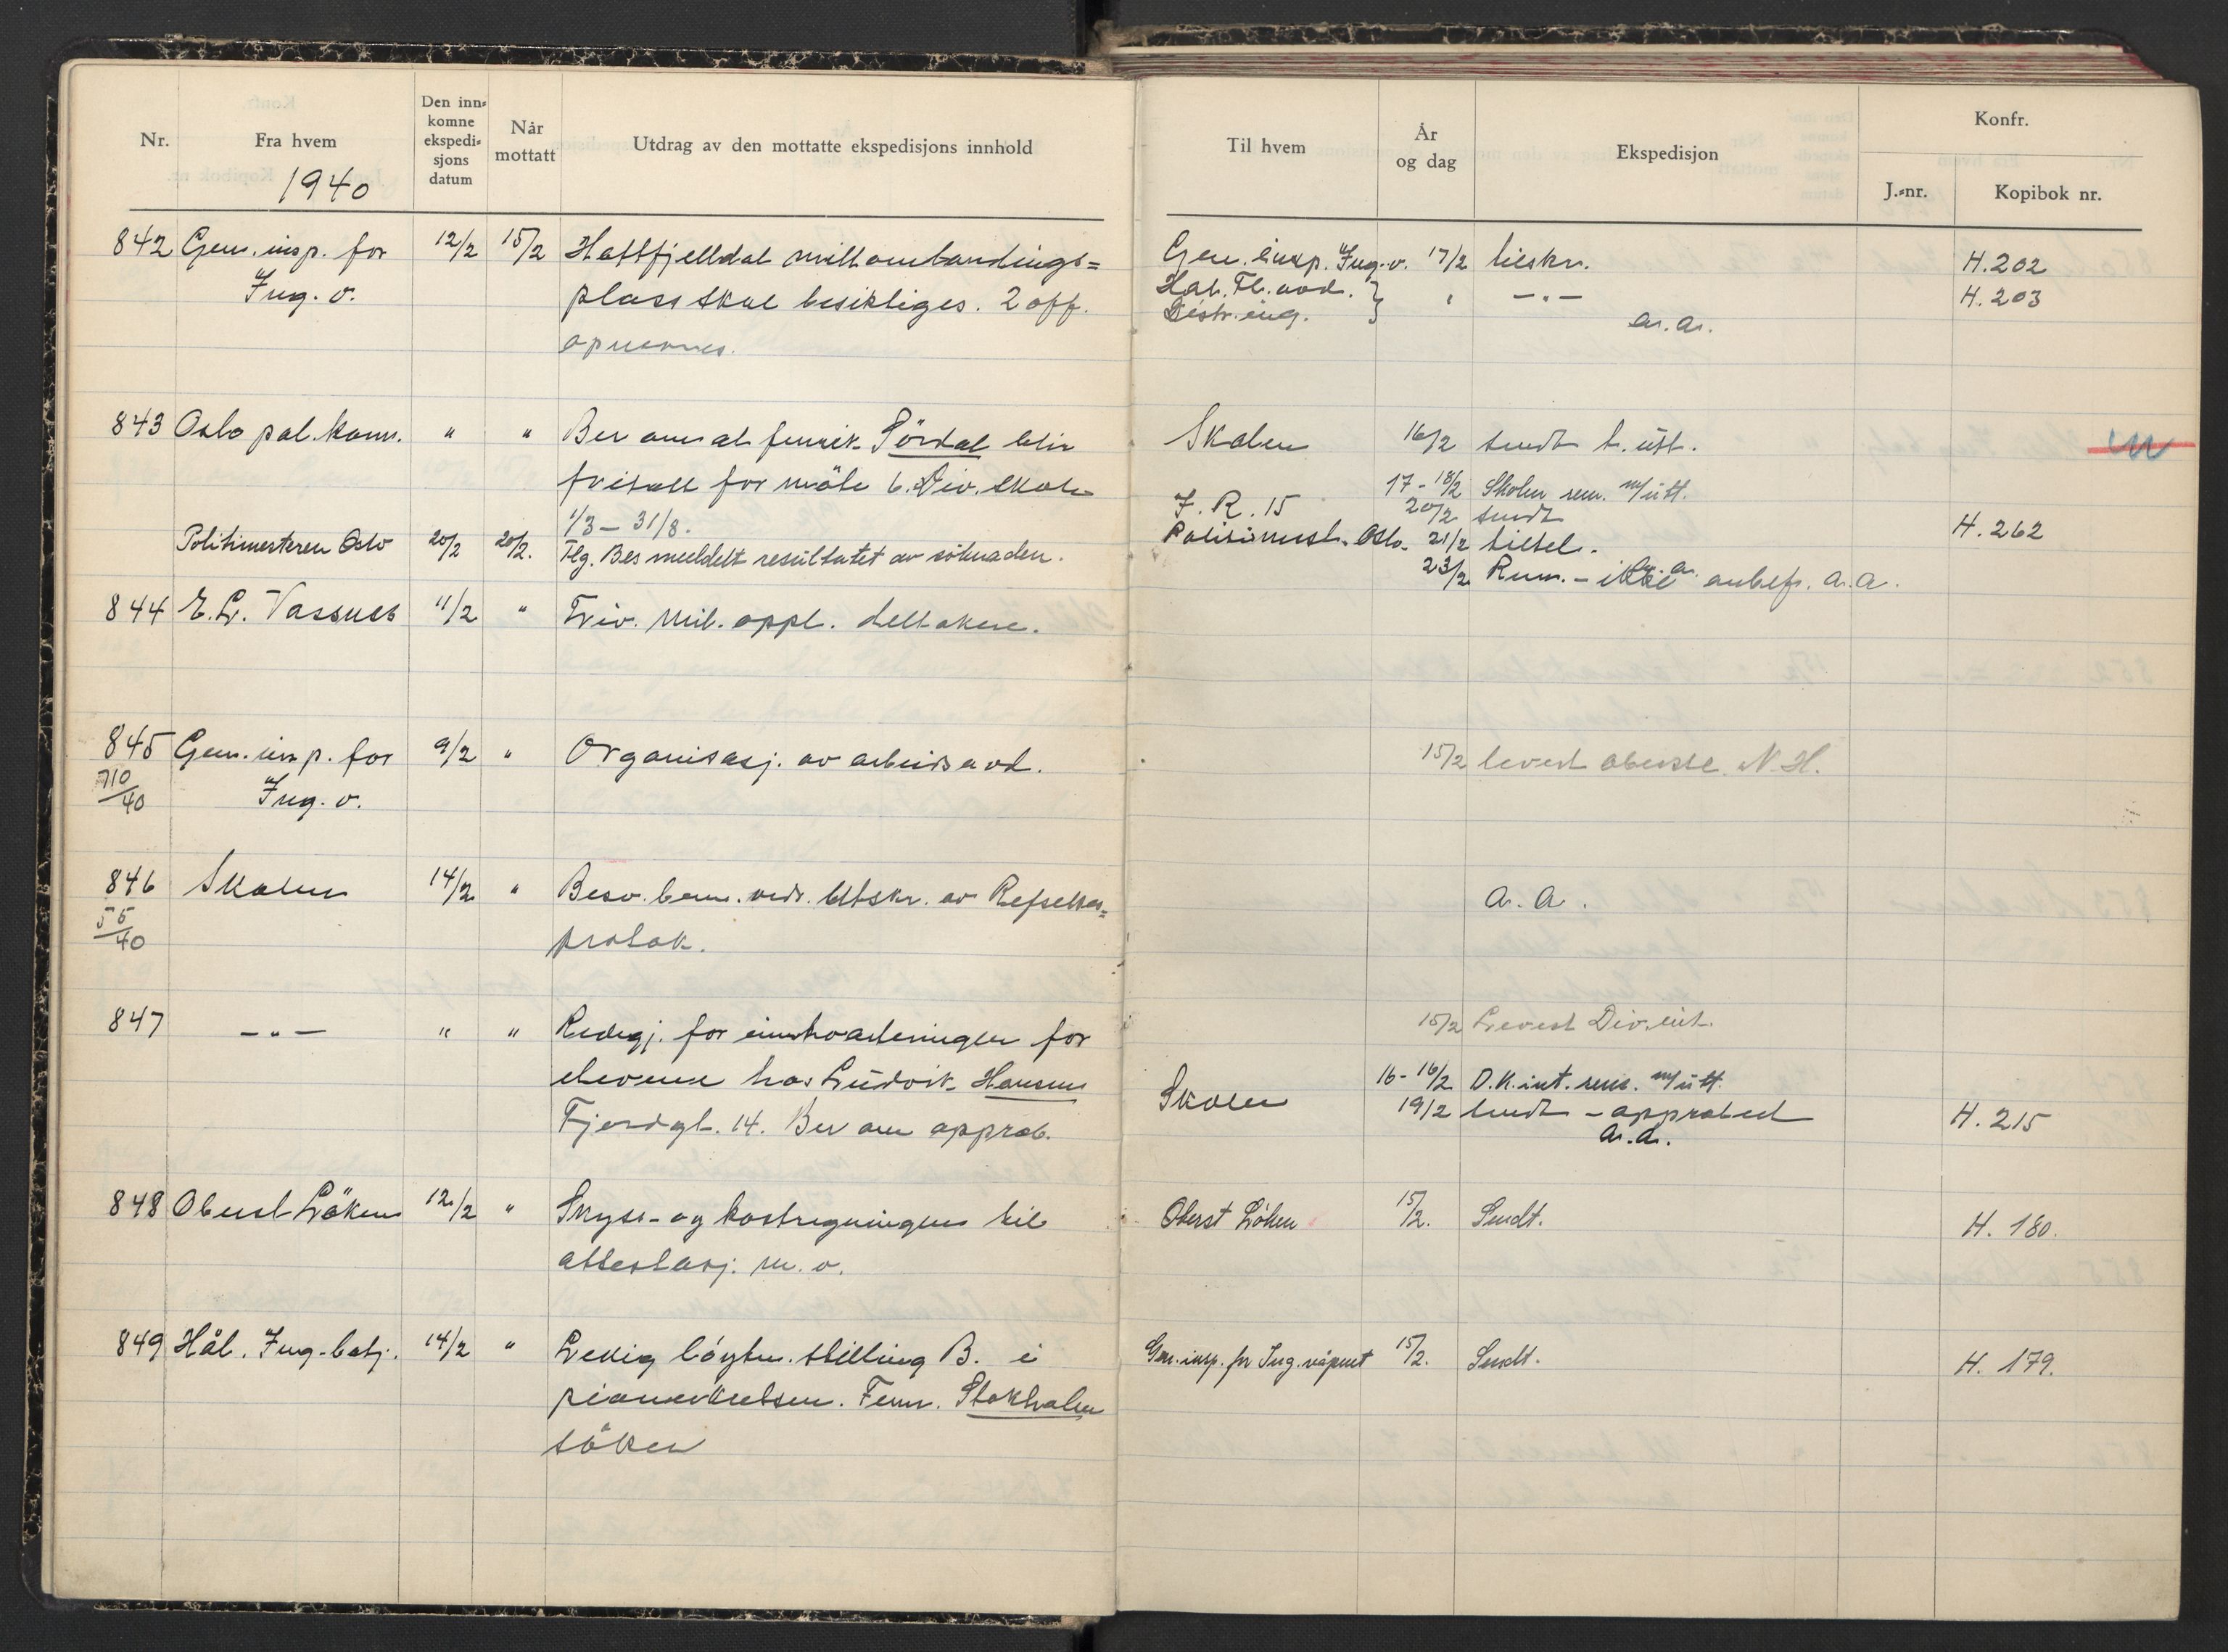 Nr.
Fra hvem
1940
Den inn-
komne
ekspedi-
sjons
datum
Når
mottatt
Utdrag av den mottatte ekspedisjons innhold
Til hvem
År
og dag
Ekspedisjon
Konfr.
J.-nr.
Kopibok nr.
842 Gen. insp. for 12/2 15/2 Hattfjelldal
Ing. v. plass skal besiktiges. 2 off.
opnevnes.
Gen. insp. Ing. v. 17/2 tilskr. H. 202
Hål. Fl. avd. } " — " — H. 203
Distr. ing.
a. a.
843 Oslo pol. kam. " " Ber om at fenrik Sördal blir
fritatt for möte 6. Div. skole
1/3 – 31/8.
Politimesteren Oslo 20/2 20/2. Tlg. Bes meddelt resultatet av söknaden.
Skolen 16/2 sendt t. utt.
17 - 18/2 Skolen rem. m/utt.
I. R. 15 20/2 sendt
Politimest. Oslo. 21/2 tiltel. H. 262
a. a.
23/2 Rem. – ikke anbef. a. a.
844 E. L. Vassnes 11/2 " Friv. mil. oppl. deltakere.
845 Gen. insp. for 9/2 " Organisasj. av arbeidsavd.
710/40 Ing. v.
15/2 levert oberstl. N. H.
846 Skolen 14/2 " Besv. bem. vedr. utskr. av Refselses-
55/40 protok.
a. a.
847 — " — " " Redegj. for innkvarteringen for
elevene hos Ludvik Hansen
Fjordgt. 14. Ber om approb.
15/2 Levert Div. int.
16 - 16/2 D.K. int. rem. m/utt.
Skolen 19/2 sendt – approbert H. 215
a. a.
848 Oberst Löken 12/2 " Skyss- og kostregningen til
attestasj. m. v.
Oberst Löken 15/2. Sendt. H. 180.
849 Hål. Ing. batj. 14/2 " Ledig löytn. stilling B. i
pionerkretsen. Fenr. Stokholm
söker
Gen. insp. for Ing. våpnet 15/2. Sendt. H. 179.